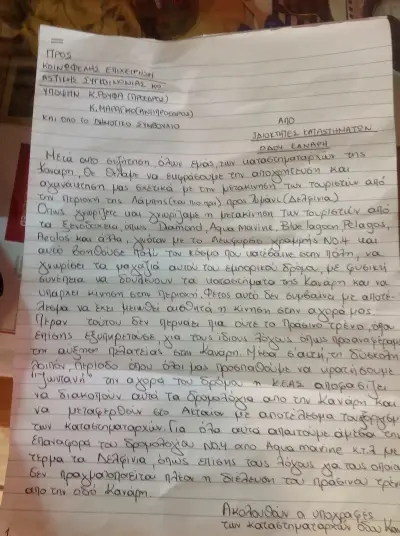 ΠΡΟΣ
ΚΟΙΝΩΦΕΛΗΣ ΕΠΙΧΕΙΡΗΣΗ
ΑΣΤΙΚΗΣ ΣΥΓΚΟΙΝΩΝΙΑΣ ΚΩ
ΥΠΟΨΗΝ Κ. ΡΟΥΦΑ (ΠΡΟΕΔΡΟΣ)
Κ. (ΑΝΤΙΠΡΟΕΔΡΟΣ)
ΚΑΙ ΟΛΟ ΤΟ ΔΗΜΟΤΙΚΟ ΣΥΜΒΟΥΛΙΟ
ΑΠΟ
ΙΔΙΟΚΤΗΤΕΣ ΚΑΤΑΣΤΗΜΑΤΩΝ
ΟΔΟΥ ΚΑΝΑΡΗ
Μετά από συζήτηση όλων εμάς, των καταστηματαρχών της
Κανάρη, θα θέλαμε να εκφράσουμε την απογοήτευση και
αγανάκτηση μας σχετικά με την μετακίνηση των τουριστών από
την περιοχή της Λάμπης (και πιο πριν) προς λιμάνι (Δελφίνια)
Όπως γνωρίζετε και γνωρίζαμε η μετακίνηση των τουριστών από
τα ξενοδοχεία, όπως Diamond, Aqua Marine, Blue lagoon, Pelagos,
Aeolos και άλλα, γινόταν με το λεωφορείο γραμμής ΝΟ.4 και
αυτό βοηθούσε πολύ τον κόσμο που κατέβαινε στην πόλη, να
γνωρίσει τα μαγαζιά αυτού του εμπορικού δρόμου, με φυσική
συνέπεια να δουλεύουν τα καταστήματα της Κανάρη και να
υπάρχει κίνηση στην περιοχή. Φέτος αυτό δεν συμβαίνει με αποτέ-
λεσμα να έχει μειωθεί αισθητά η κίνηση στην αγορά μας.
Πέραν τούτου δεν περνάει πια ούτε το Πράσινο τρένο, όπου
επίσης εξυπηρετούσε για τους ίδιους λόγους όπως προαναφέραμε
την αύξηση πελατείας στην Κανάρη. Μέσα σ'αυτή τη δύσκολη
λοιπόν, περίοδο όπου όλοι μας προσπαθούμε να κρατήσουμε
"ζωντανή" την αγορά του δρόμου, η ΚΕΑΣ αποφασίζει
να διακοπούν αυτά τα δρομολόγια από την Κανάρη και
να μεταφερθούν στο Ακταίον με αποτέλεσμα
των καταστηματαρχών. Για όλα αυτά απαιτούμε άμεσα την
επαναφορά του δρομολογίου ΝΟ.4 από Aqua marine κ.τ.λ με
τέρμα τα Δελφίνια, όπως επίσης τους λόγους για τους οποίους
δεν πραγματοποιείται πλέον η διέλευση του πράσινου τρένου
από την οδό Κανάρη.
Ακολουθούν α υπογραφές
των καταστηματαρχών οδού Καν